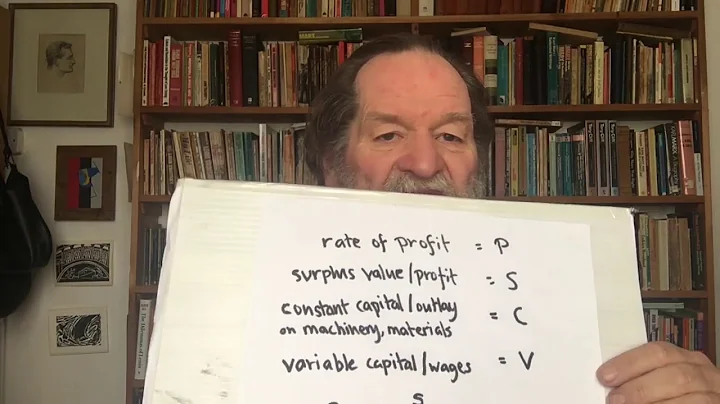 rate of profit = P
surplus value/profit = S
constant capital/outlay
on machinery, materials = C
variable capital/wages = V
S